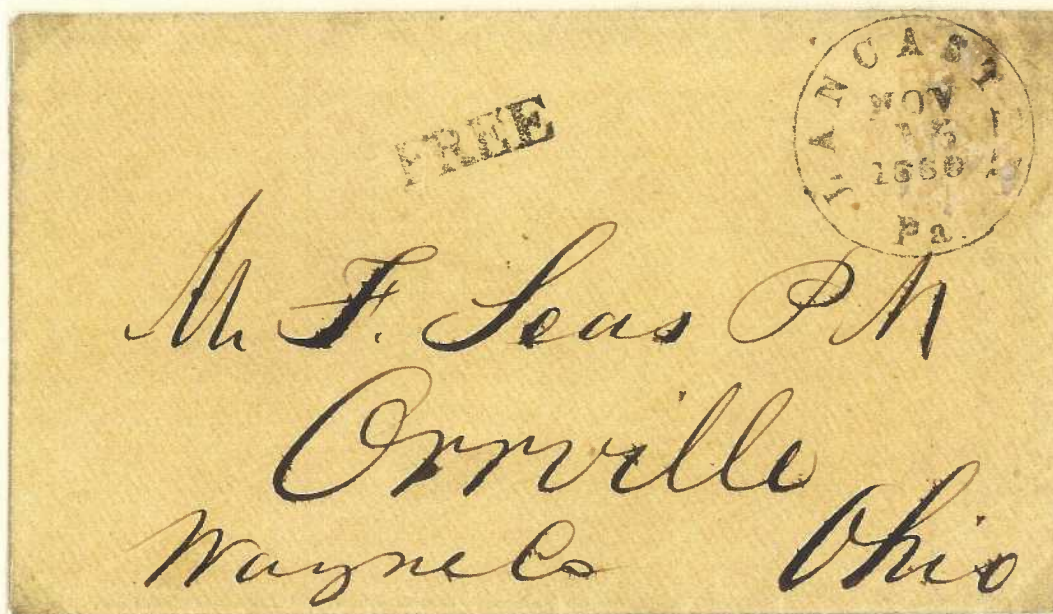 LANCASTER
NOV
15
1860
Pa.
FREE
M. F. Seas P M
Orrville
Wayne Co
Ohio